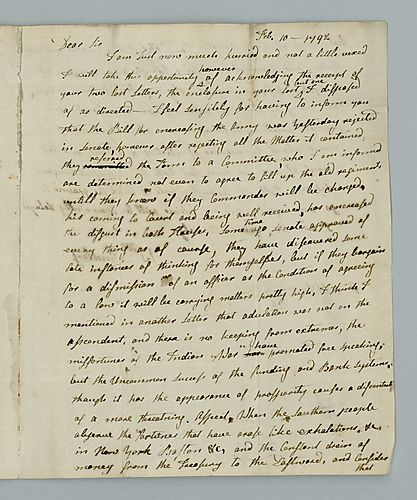 Feb. 10 - 1792
Dear Sir
I am Just now much hurried and not a little vexed
I will take this opportunity however of acknowledging the receipt of
your two last Letters, the enclosure in your last but one, I disposed
of as directed — I feel sensibly for having to inform you
that the Bill for encreasing the Army was Yesterday rejected
in Senate, however after rejecting all the Matter it contained
they referred the Form to a Committee who I am informed
are determined not even to agree to fill up the old regiments,
untill they know if they Commander will be changed,
his coming to Court and being well received, has encreased
the disgust in both Houses, Some time ago Senate approved of
every thing as of course, they have discovered some
late instances of thinking for themselves, but if they bargain
for a dismission of an officer as the Condition of agreeing
to a Law it will be carrying matters pretty high, I think I
mentioned in another Letter that adulation was not on the
ascendent, and there is no keeping from extremes, the
misfortunes of the Indian War have promoted free speaking;
but the Uncommon Success of the funding and Bank Systems,
though it has the appearance of prosperity causes a discontent
of a more threatning Aspect, When the Southern people
observe the Fortunes that have arose like exhalations, &c
in New York Boston &c, and the Constant drain of
money from the Treasury to the Eastward, and Consider
that